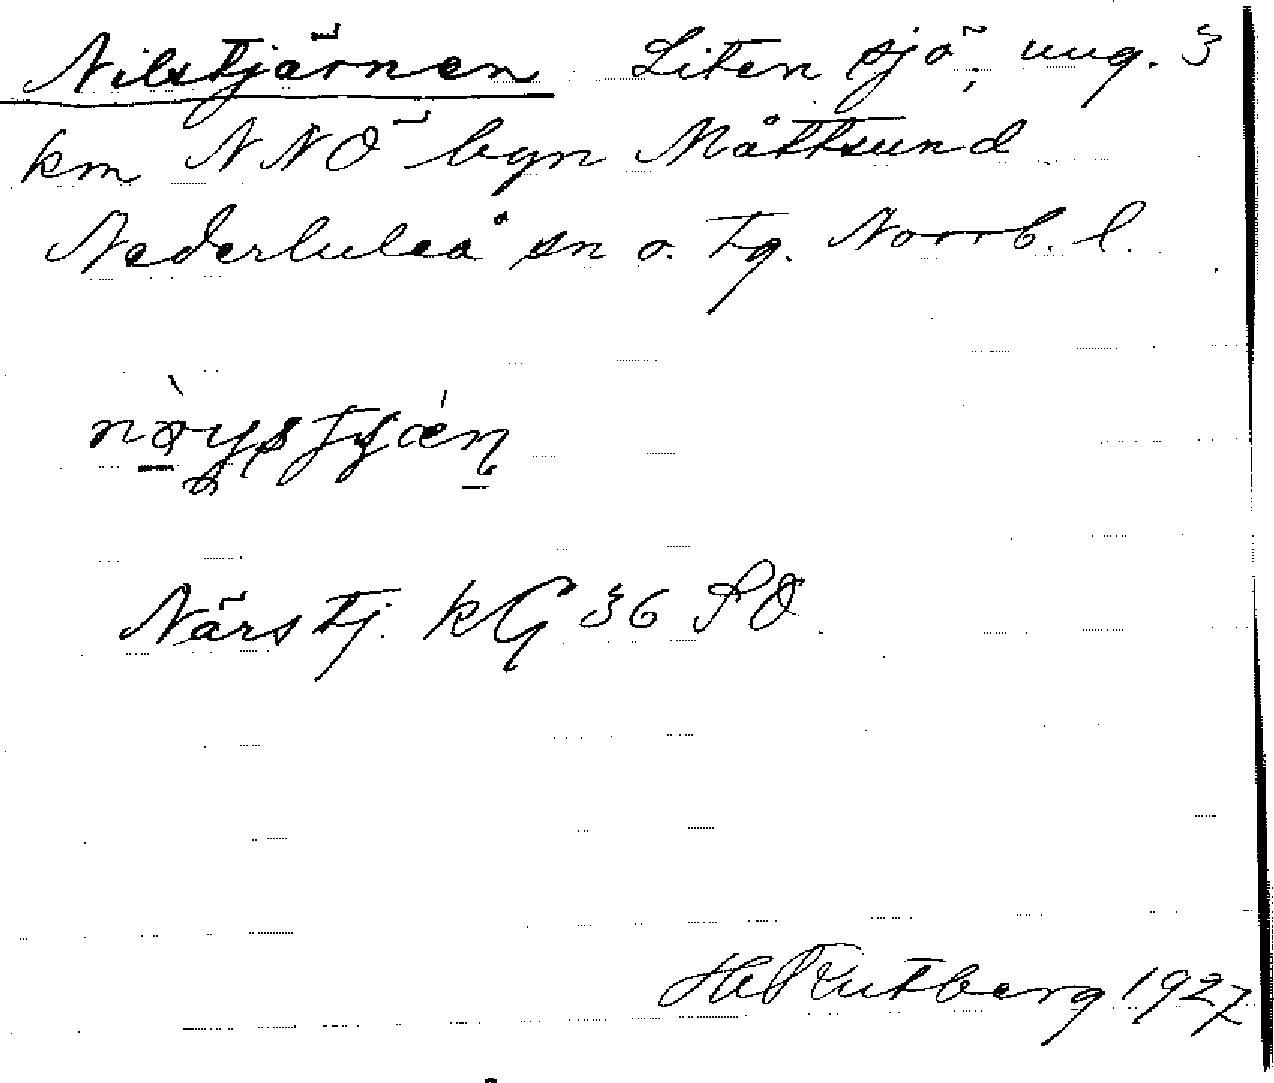 Nilstjärnen Liten sjö, ung. 3
km NNÖ byn Måttsund
Nederluleå sn o. tg. Norrb. l.
Närstj. kG 36 SO
Rutberg 1927